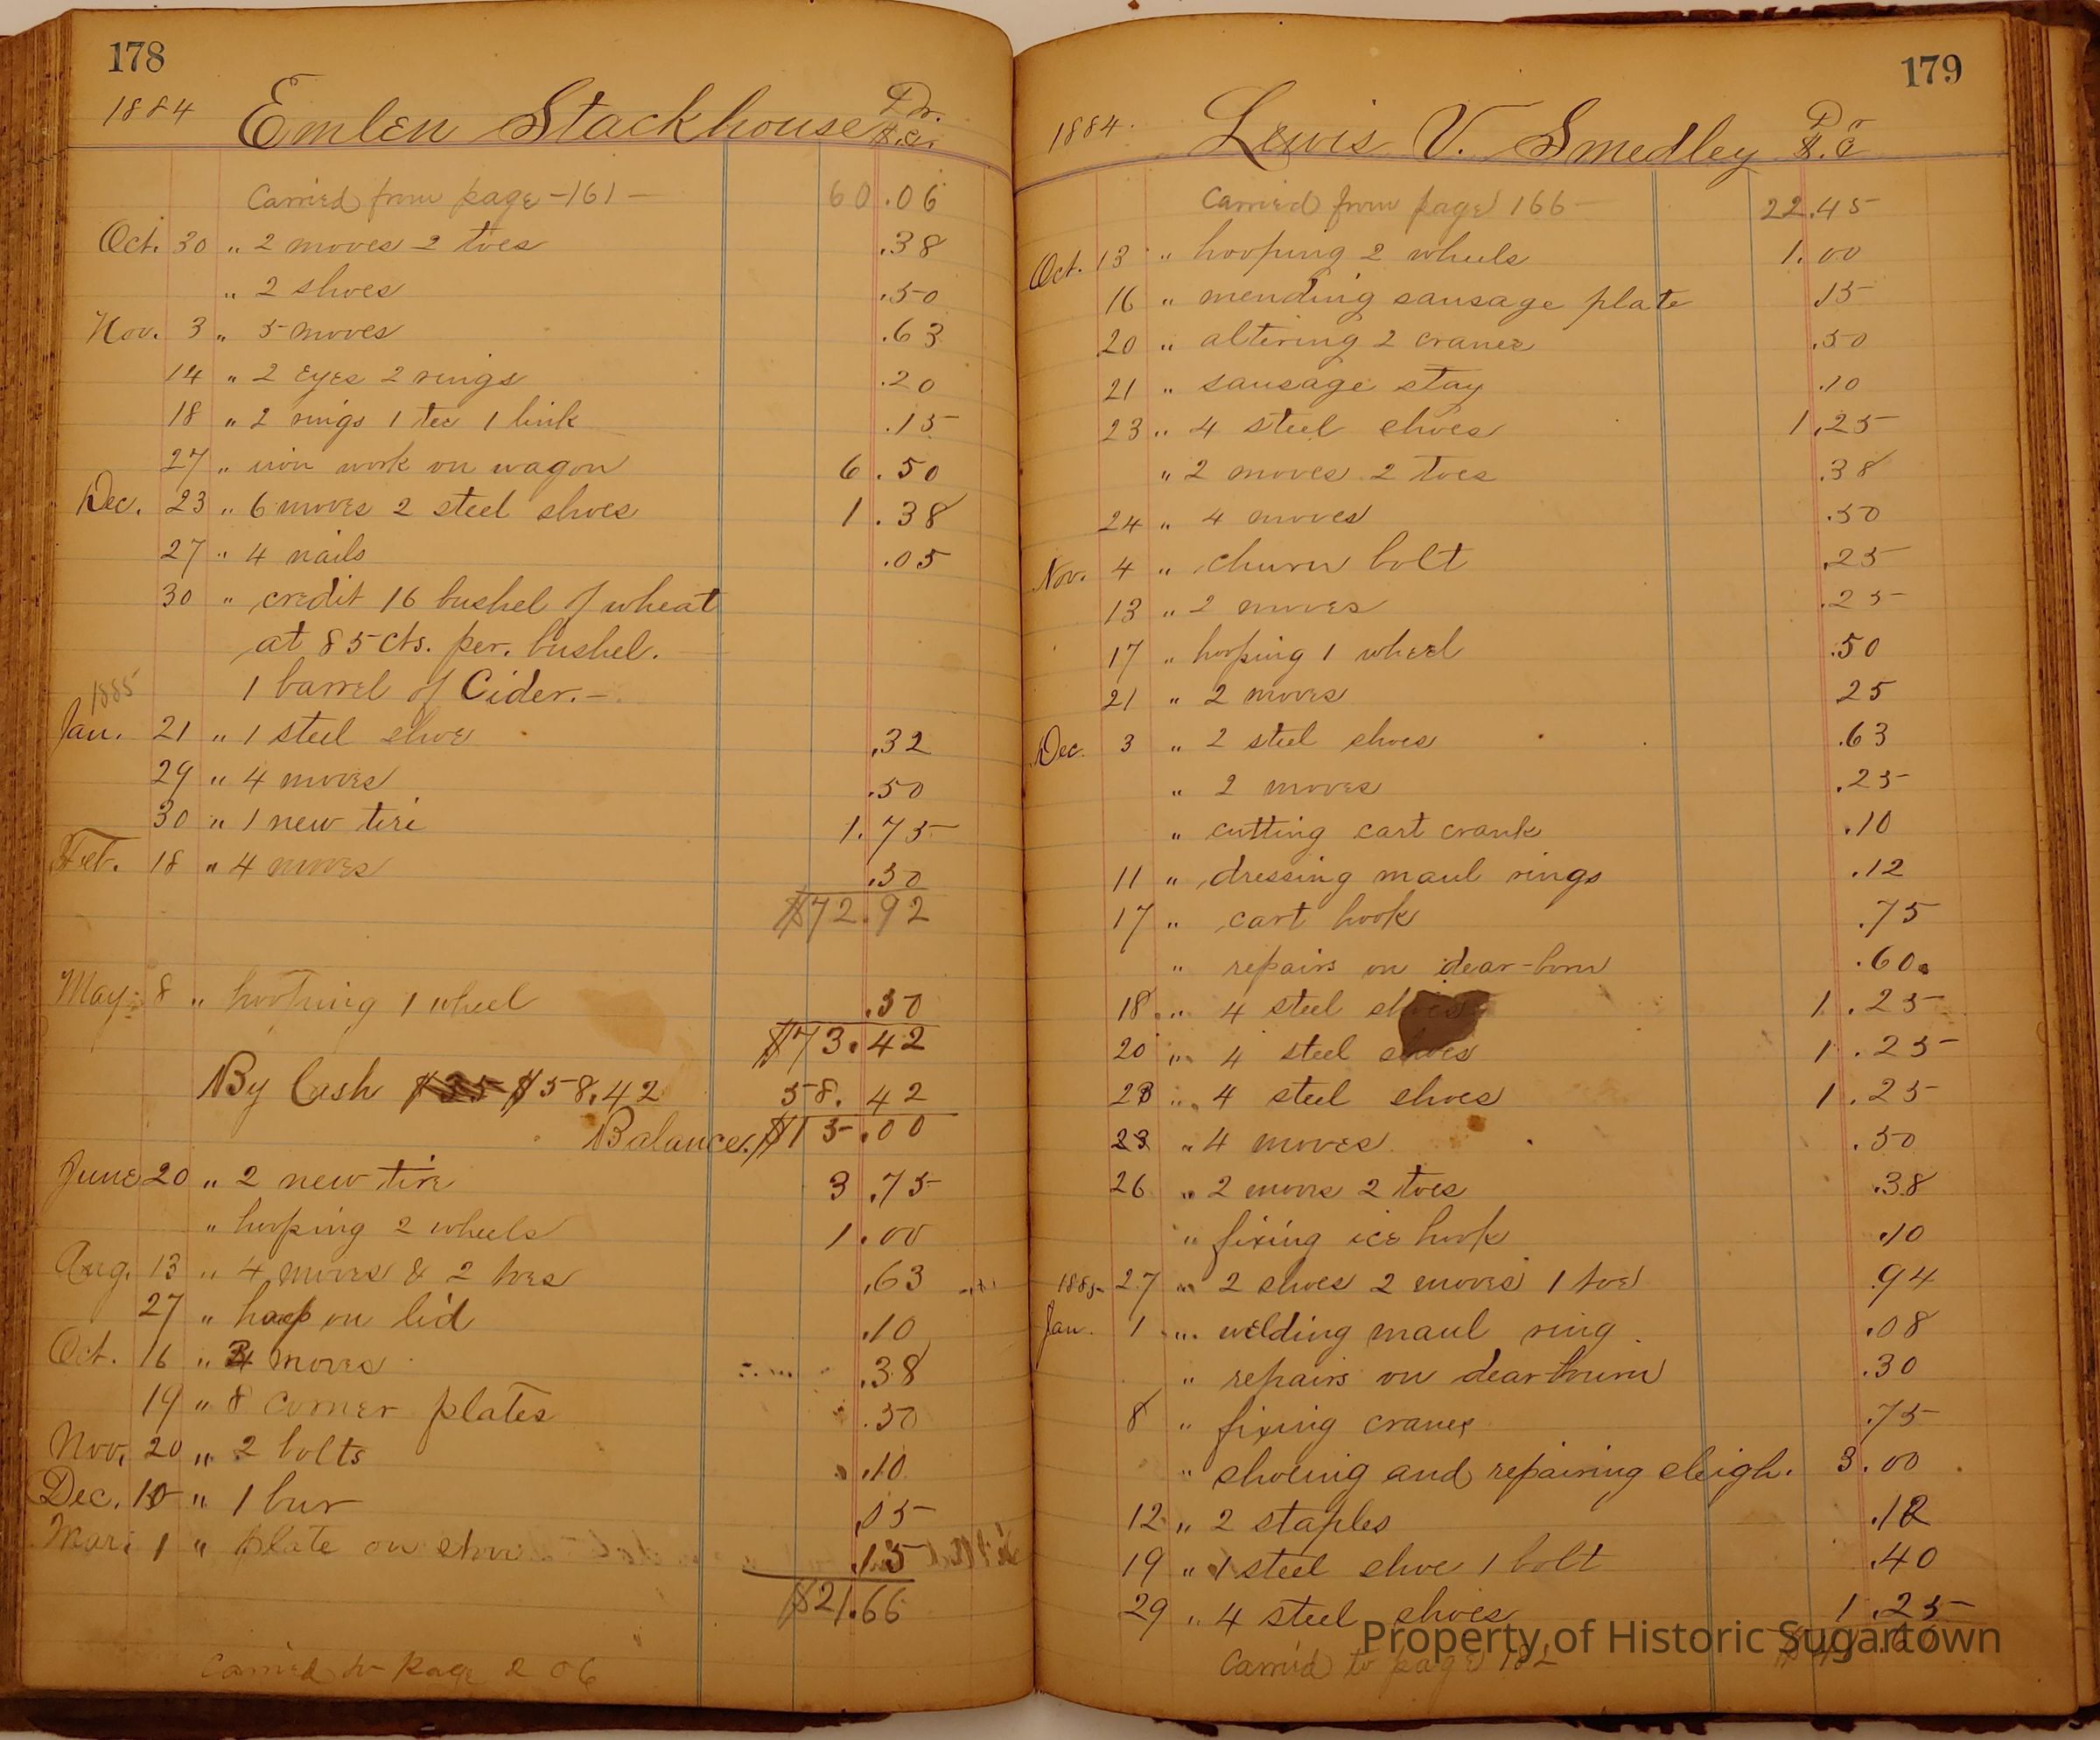 178
1884 Emlen Stackhouse Dr.
$.c.
Carried from page -161- 60.06
Oct. 30 " 2 moves 2 toes .38
" 2 shoes .50
Nov. 3 " 5 moves .63
14 " 2 Eyes 2 rings .20
18 " 2 rings 1 tee 1 link .15
27 " iron work on wagon 6.50
Dec. 23 " 6 moves 2 steel shoes 1.38
27 " 4 nails .05
30 " credit 16 bushel of wheat
at 85 cts. per. bushel.
1 barrel of Cider.-
1885
Jan. 21 " 1 steel shoe .32
29 " 4 moves .50
30 " 1 new tire 1.75
Feb. 18 " 4 moves .50
$72.92
May 8 " hooping 1 wheel .50
$73.42
By Cash $58.42 58.42
Balance. $15.00
June 20 " 2 new tire 3.75
" hooping 2 wheels 1.00
Aug. 13 " 4 moves & 2 toes .63
27 " hasp on lid .10
Oct. 16 " moves .38
19 " 8 corner plates .50
Nov. 20 " 2 bolts .10
Dec. 10 " 1 bur .05
Mar. 1 " plate on shoe .15
$21.66
Carried to page 206
179
1884. Lewis V. Smedley Dr
$.c
Carried from page 166 - 22.45
Oct. 13 " hooping 2 wheels 1.00
16 " mending sausage plate .15
20 " altering 2 cranes .50
21 " sausage stay .10
23 " 4 steel shoes 1.25
" 2 moves 2 toes .38
24 " 4 moves .50
Nov. 4 " churn bolt .25
13 " 2 moves .25
17 " hooping 1 wheel .50
21 " 2 moves 25
Dec. 3 " 2 steel shoes .63
" 2 moves .25
" cutting cart crank .10
11 " dressing maul rings .12
17 " cart hook .75
" repairs on dear-born .60
18 " 4 steel shoes 1.25
20 " 4 steel shoes 1.25
23 " 4 steel shoes 1.25
23 " 4 moves .50
26 " 2 moves 2 toes .38
" fixing ice hook .10
1885 27 " 2 shoes 2 moves 1 toe .94
Jan. 1 " welding maul ring .08
" repairs on dear-bourn .30
8 " fixing cranes .75
" shoeing and repairing sleigh. 3.00
12 " 2 staples .12
19 " 1 steel shoe 1 bolt .40
29 " 4 steel shoes 1.25
Carried to page 182
Property of Historic Sugartown